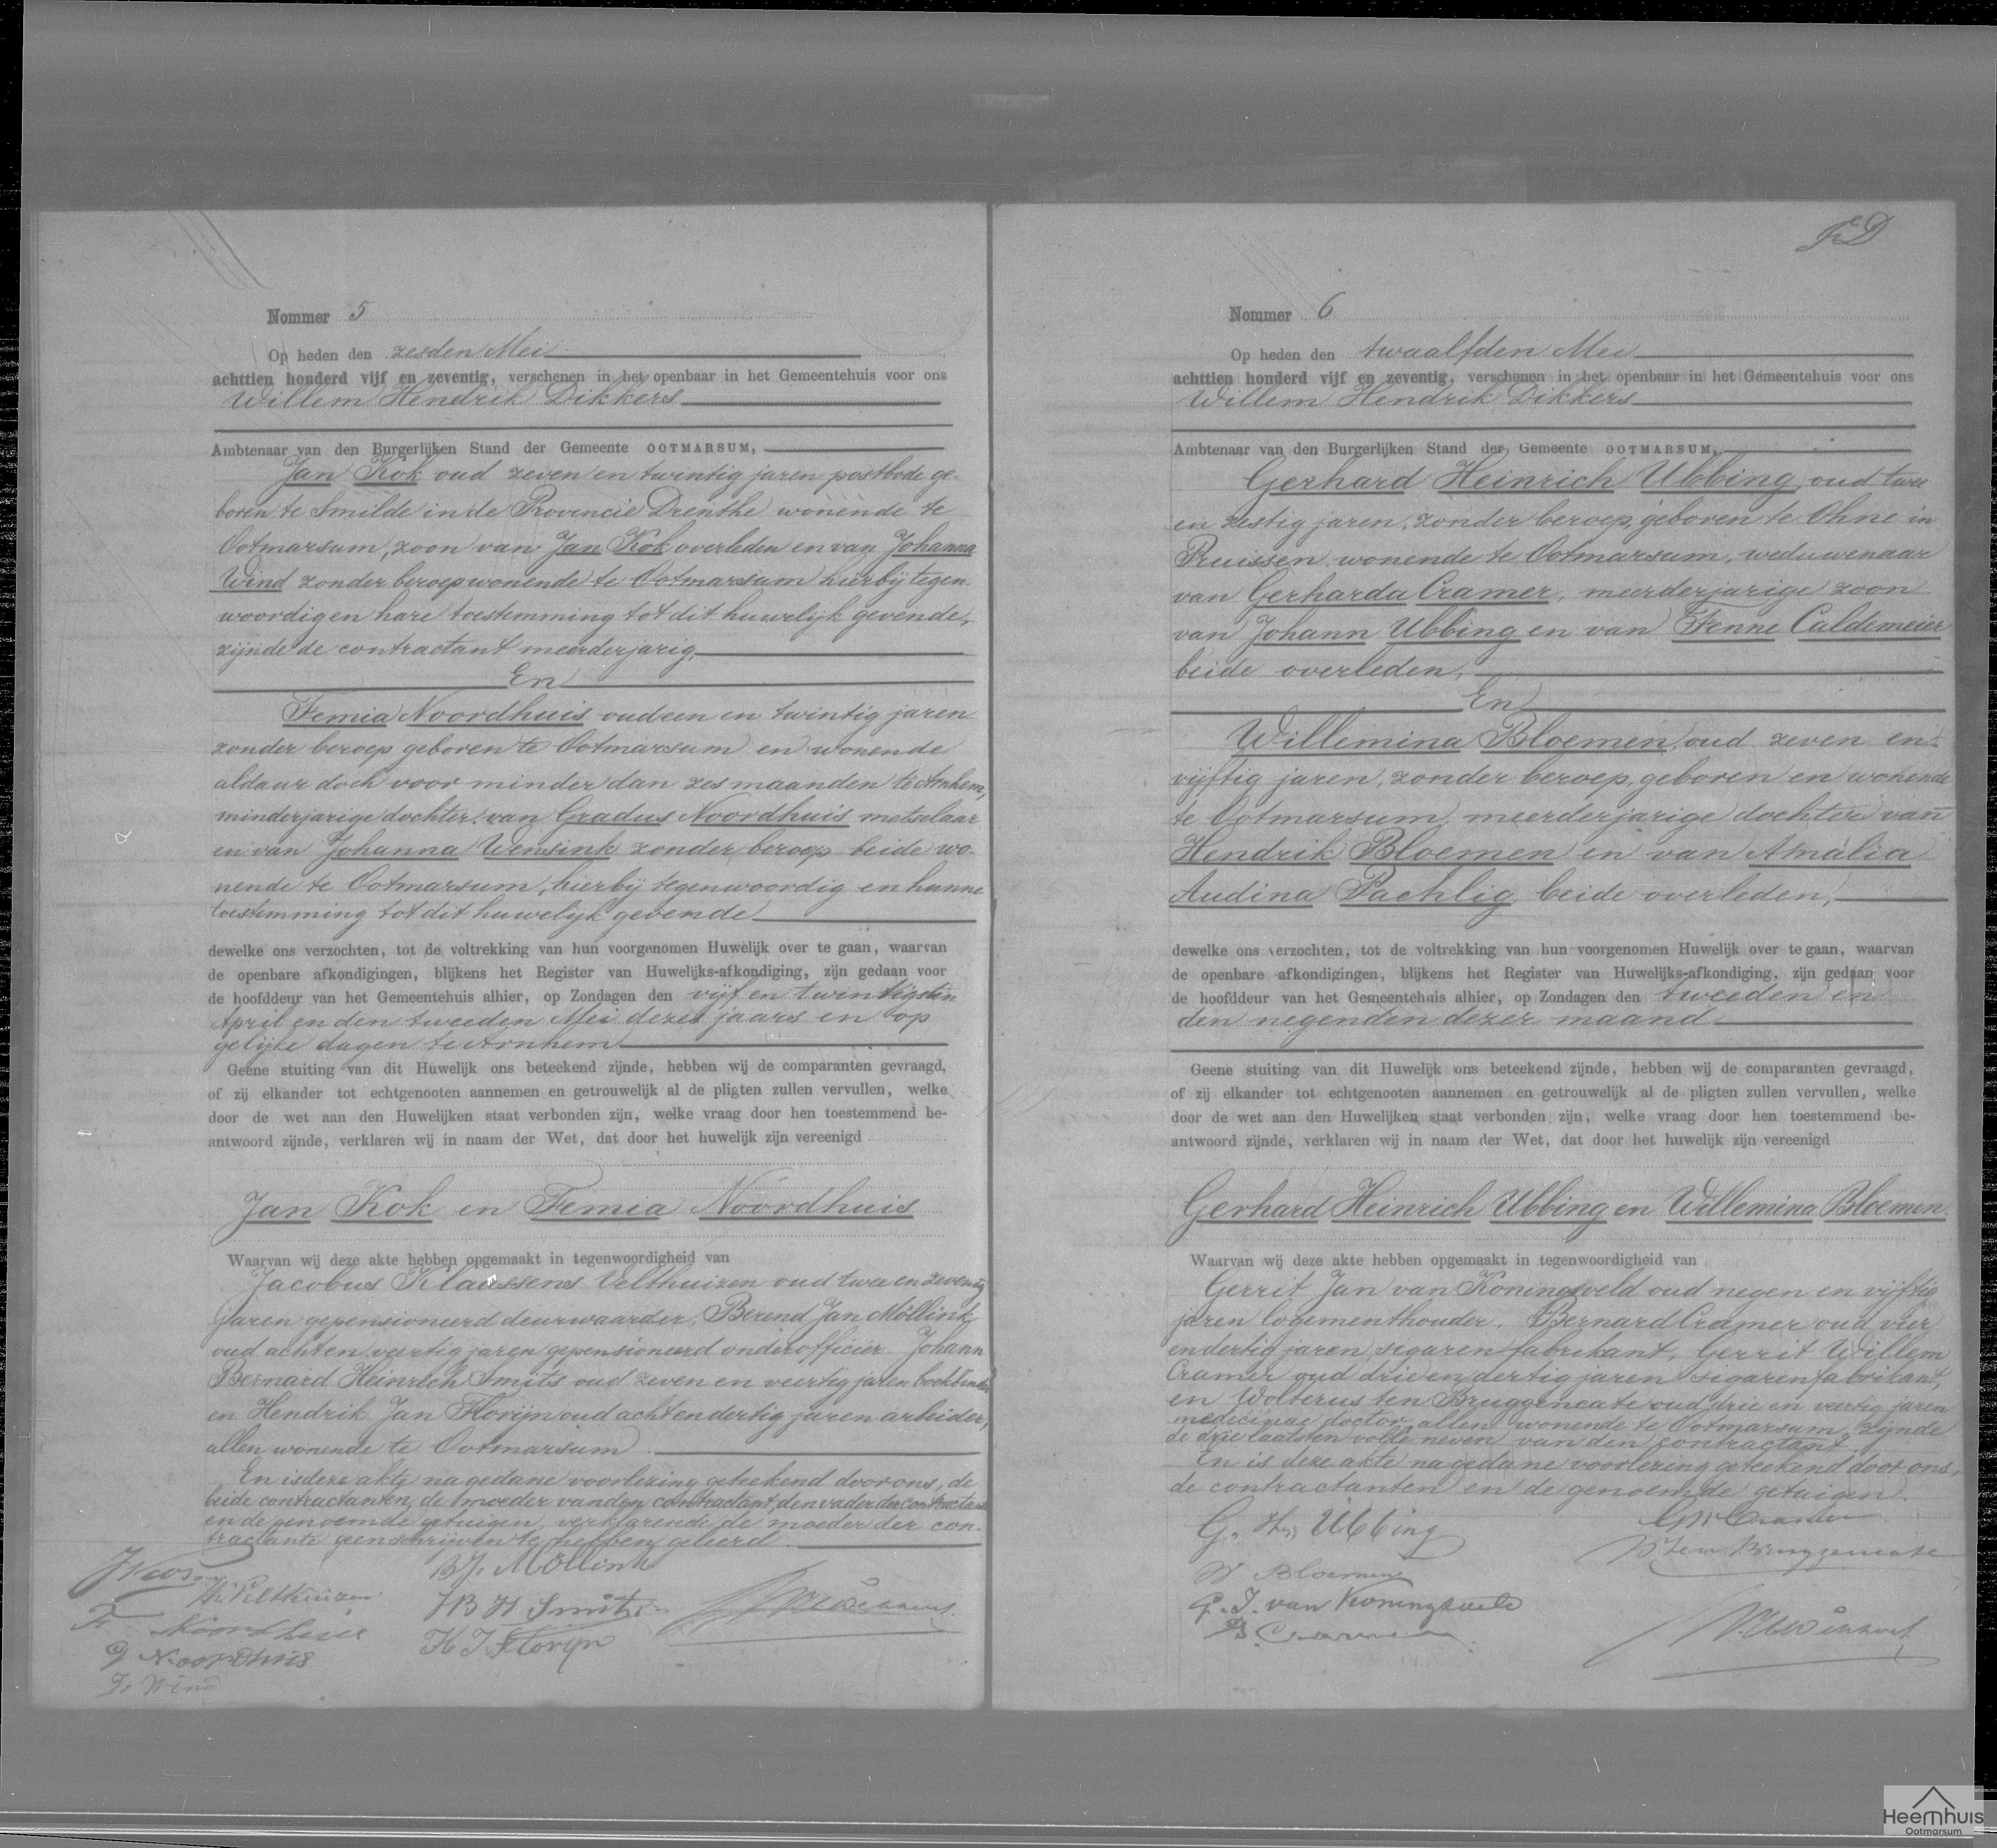 Nommer 5
Op heden den zesden Mei
achttien honderd vijf en zeventig, verschenen in het openbaar in het Gemeentehuis voor ons
Willem Hendrik Dikkers
Ambtenaar van den Burgerlijken Stand der Gemeente OOTMARSUM,
Jan Kok oud zeven en twintig jaren postbode ge-
boren te Smilde in de Provincie Drenthe wonende te
Ootmarsum, zoon van Jan Kok overleden en van Johanna
Wind zonder beroep wonende te Ootmarsum hierbij tegen-
woordig en hare toestemming tot dit huwelijk gevende,
zijnde de contractant meerderjarig,
En
Femia Noordhuis oud een en twintig jaren
zonder beroep geboren te Ootmarsum en wonende
aldaar doch voor minder dan zes maanden te Arnhem,
minderjarige dochter van Gradus Noordhuis metselaar
en van Johanna Wensink zonder beroep beide wo-
nende te Ootmarsum, hierbij tegenwoordig en hunne
toestemming tot dit huwelijk gevende
dewelke ons verzochten, tot de voltrekking van hun voorgenomen Huwelijk over te gaan, waarvan
de openbare afkondigingen, blijkens het Register van Huwelijks-afkondiging, zijn gedaan voor
de hoofddeur van het Gemeentehuis alhier, op Zondagen den vijf en twintigsten
April en den tweeden Mei dezes jaars en op
gelijke dagen te Arnhem
Geene stuiting van dit Huwelijk ons beteekend zijnde, hebben wij de comparanten gevraagd,
of zij elkander tot echtgenooten aannemen en getrouwelijk al de pligten zullen vervullen, welke
door de wet aan den Huwelijken staat verbonden zijn, welke vraag door hen toestemmend be-
antwoord zijnde, verklaren wij in naam der Wet, dat door het huwelijk zijn vereenigd
Jan Kok en Femia Noordhuis
Waarvan wij deze akte hebben opgemaakt in tegenwoordigheid van
Jacobus Klaassens Velthuizen oud twee en zeventig
jaren gepensioneerd deurwaarder, Berend Jan Möllink
oud acht en veertig jaren gepensioneerd onderofficier Johann
Bernard Heinrich Smits oud zeven en veertig jaren boekbinder
en Hendrik Jan Florijn oud acht en dertig jaren arbeider,
allen wonende te Ootmarsum
En is deze akte na gedane voorlezing geteekend door ons, de
beide contractanten, de moeder van den contractant, den vader der contractante
en de genoemde getuigen, verklarende de moeder der con-
tractante geen schrijven te hebben geleerd
J Kok
Velthuizen
F Noordhuis
G Noordhuis
J. Wind
B J. Möllink
J B H Smits
H J Florijn
WHDikkers
FD
Nommer 6
Op heden den twaalfden Mei
achttien honderd vijf en zeventig, verschenen in het openbaar in het Gemeentehuis voor ons
Willem Hendrik Dikkers
Ambtenaar van den Burgerlijken Stand der Gemeente OOTMARSUM,
Gerhard Heinrich Ubbing, oud twee
en zestig jaren, zonder beroep, geboren te Ohne in
Pruissen wonende te Ootmarsum, weduwenaar
van Gerharda Cramer, meerderjarige zoon
van Johann Ubbing en van Fenne Caldemeier
beide overleden,
En
Willemina Bloemen, oud zeven en
vijftig jaren, zonder beroep, geboren en wonende
te Ootmarsum, meerderjarige dochter van
Hendrik Bloemen en van Amalia
Audina Paehlig, beide overleden,
dewelke ons verzochten, tot de voltrekking van hun voorgenomen Huwelijk over te gaan, waarvan
de openbare afkondigingen, blijkens het Register van Huwelijks-afkondiging, zijn gedaan voor
de hoofddeur van het Gemeentehuis alhier, op Zondagen den tweeden en
den negenden dezer maand
Geene stuiting van dit Huwelijk ons beteekend zijnde, hebben wij de comparanten gevraagd,
of zij elkander tot echtgenooten aannemen en getrouwelijk al de pligten zullen vervullen, welke
door de wet aan den Huwelijken staat verbonden zijn, welke vraag door hen toestemmend be-
antwoord zijnde, verklaren wij in naam der Wet, dat door het huwelijk zijn vereenigd
Gerhard Heinrich Ubbing en Willemina Bloemen.
Waarvan wij deze akte hebben opgemaakt in tegenwoordigheid van
Gerrit Jan van Koningsveld oud negen en vijftig
jaren logementhouder, Bernard Cramer oud vier
en dertig jaren, sigarenfabrikant, Gerrit Willem
Cramer oud drie en dertig jaren sigarenfabrikant,
en Wolterus ten Bruggencate oud drie en veertig jaren
medicinae doctor, allen wonende te Ootmarsum, zijnde
de drie laatsten volle neven van den contractant
En is deze akte na gedane voorlezing geteekend door ons,
de contractanten en de genoemde getuigen.
G. H. Ubbing
W Bloemen
G. J. van Koningsveld
B. Cramer
GW Cramer
W ten Bruggencate
WHDikkers
Heemhuis
Ootmarsum